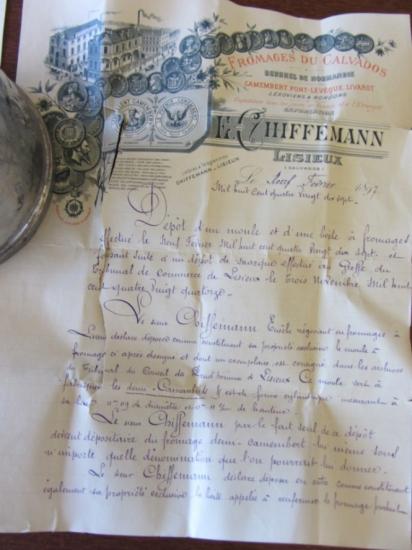 FROMAGES DU CALVADOS
GÉNÉRAL DE NORMANDIE
CAMEMBERT PONT-LEVÊQUE, LIVAROT
LEXOVIENS & MONDORS
EXPORTATION
E. CHIFFEMANN
LISIEUX
(CALVADOS)
CHIFFEMANN - LISIEUX
Le Neuf Février 1897
Mil huit cent quatre vingt dix sept.
Dépôt d'un moule et d'une boîte à fromages
effectué le Neuf Février Mil huit cent quatre Vingt dix sept et
faisant suite à un dépôt de marque effectué au Greffe du
Tribunal de Commerce de Lisieux le Trois Novembre Mil huit
cent quatre vingt quatorze.
Le sieur Chiffemann Emile négociant en fromages à
Lisieux déclare déposer comme constituant sa propriété exclusive le moule à
fromage ci après désigné et dont un exemplaire est consigné dans les archives
du Conseil de Prud'hommes de Lisieux Ce moule sert à
fabriquer les demi-Camemberts
Le sieur Chiffemann par le fait seul de ce dépôt
devient dépositaire du fromage demi-camembert lui même sous
n'importe quelle dénomination que l'on pourrait lui donner.
Le sieur Chiffemann déclare déposer en outre comme constituant
également sa propriété exclusive la boîte appelée à renfermer le fromage